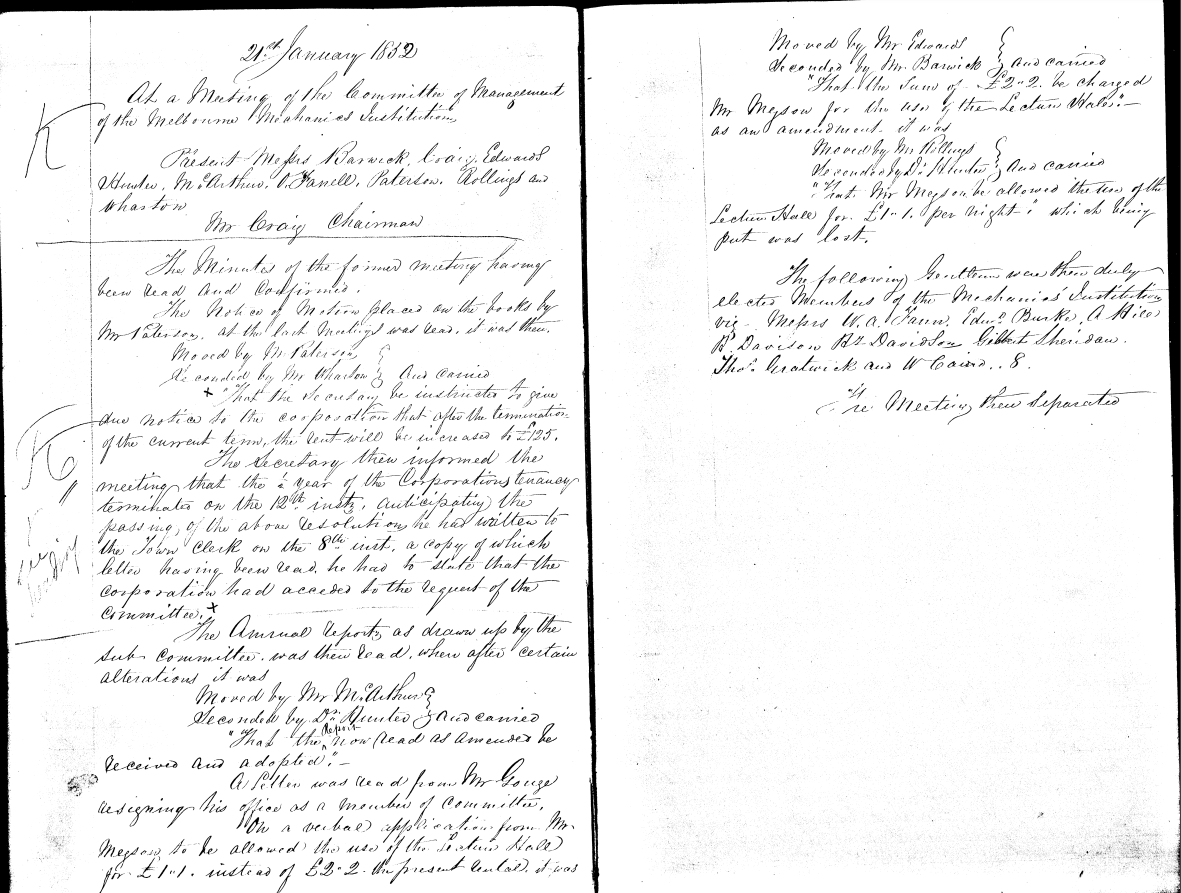 21st January 1852
At a Meeting of the Committee of Management
of the Melbourne Mechanics Institution,
K
Present Messrs Barwick, Craig, Edwards
Hunter, McArthur, O.Fanell, Paterson, Rollings and
Wharton
Mr Craig Chairman
The Minutes of the former meeting having
been read and Confirmed.
The Notice of Motion placed on the books by
Mr Paterson, at the last Meeting was read, it was then.
Moved by Mr Paterson
Seconded by Mr Wharton } And carried
x "That the Secretary be instructed to give
due notice to the corporation that after the termination
of the current term, the rent will be increased to £125.
The Secretary then informed the
meeting that the ½ year of the Corporations tenancy
terminates on the 12th inst, anticipating the
passing, of the above resolution, he had written to
the Town Clerk on the 8th inst. a copy of which
letter having been read, he had to state that the
corporation had acceded to the request of the
Committee. x
The Annual Report, as drawn up by the
Sub committee. was then read. when after certain
alterations it was
Moved by Mr McArthur
Seconded by Dr Hunter } and carried
"That the Report now read as amended be
received and adopted." —
A Letter was read from Mr Gouge
resigning his office as a member of Committee,
On a verbal application from Mr
Megson, to be allowed the use of the Lecture Hall
for £1"1. instead of £2"2. the present rental, it was
Moved by Mr Edwards
Seconded by Mr. Barwick } and carried
"That the Sum of £2"2. be charged
Mr Megson for the use of the Lecture Hall." —
as an amendment it was
Moved by Mr Rollings
Seconded by Dr Hunter } and carried
"That Mr Megson be allowed the use of the
Lecture Hall for £1"1. per night" which being
put was lost.
The following Gentlemen were then duly
elected Members of the Mechanics' Institution
viz - Messrs W. A. Edwd Burke, A
R. Davison Davidson Gilbert Sheridan.
Thos. Gratwick and W Caird.. 8.
The Meeting then Separated